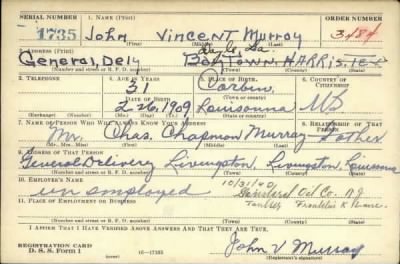 SERIAL NUMBER 1. NAME (Print) ORDER NUMBER
1735 John Vincent Murray 3484
(First) (Middle) (Last)
2. ADDRESS (Print)
General Dely BAYTOWN HARRIS TEX
(Number and street or R. F. D. number) (Town) (County) (State)
3. TELEPHONE 4. AGE IN YEARS 5. PLACE OF BIRTH 6. COUNTRY OF CITIZENSHIP
31
DATE OF BIRTH
2-26-1909 Louisiana US
(Exchange) (Number) (Mo.) (Day) (Yr.) (State or country)
7. NAME OF PERSON WHO WILL ALWAYS KNOW YOUR ADDRESS 8. RELATIONSHIP OF THAT PERSON
Mr. Chas. Chapman Murray Father
(Mr., Mrs., Miss) (First) (Middle) (Last)
9. ADDRESS OF THAT PERSON
General Delivery Livingston, Livingston, Louisiana
(Number and street or R. F. D. number) (Town) (County) (State)
10. EMPLOYER'S NAME
unemployed 10/31/40 Standard Oil Co. NJ
11. PLACE OF EMPLOYMENT OR BUSINESS Tanker Franklin K
(Number and street or R. F. D. number) (Town) (County) (State)
I AFFIRM THAT I HAVE VERIFIED ABOVE ANSWERS AND THAT THEY ARE TRUE.
REGISTRATION CARD
D. S. S. Form 1 16—17105 John V Murray
(Registrant's signature)